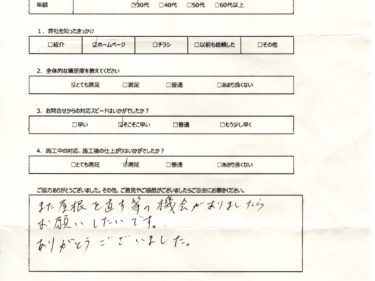 年齢 ☑30代 □40代 □50代 □60代以上
1．弊社を知ったきっかけ
□紹介 ☑ホームページ □チラシ □以前も依頼した □その他
2．全体的な満足度を教えてください
☑とても満足 □満足 □普通 □あまり良くない
3．お問合せからの対応スピードはいかがでしたか？
□早い ☑そこそこ早い □普通 □もう少し早く
4．施工中の対応、施工後の仕上がりはいかがでしたか？
□とても満足 ☑満足 □普通 □あまり良くない
ご協力ありがとうございました。その他、ご意見やご感想がございましたらご自由にお書きください。
また屋根を直す等の機会がありましたら
お願いしたいです。
ありがとうございました。